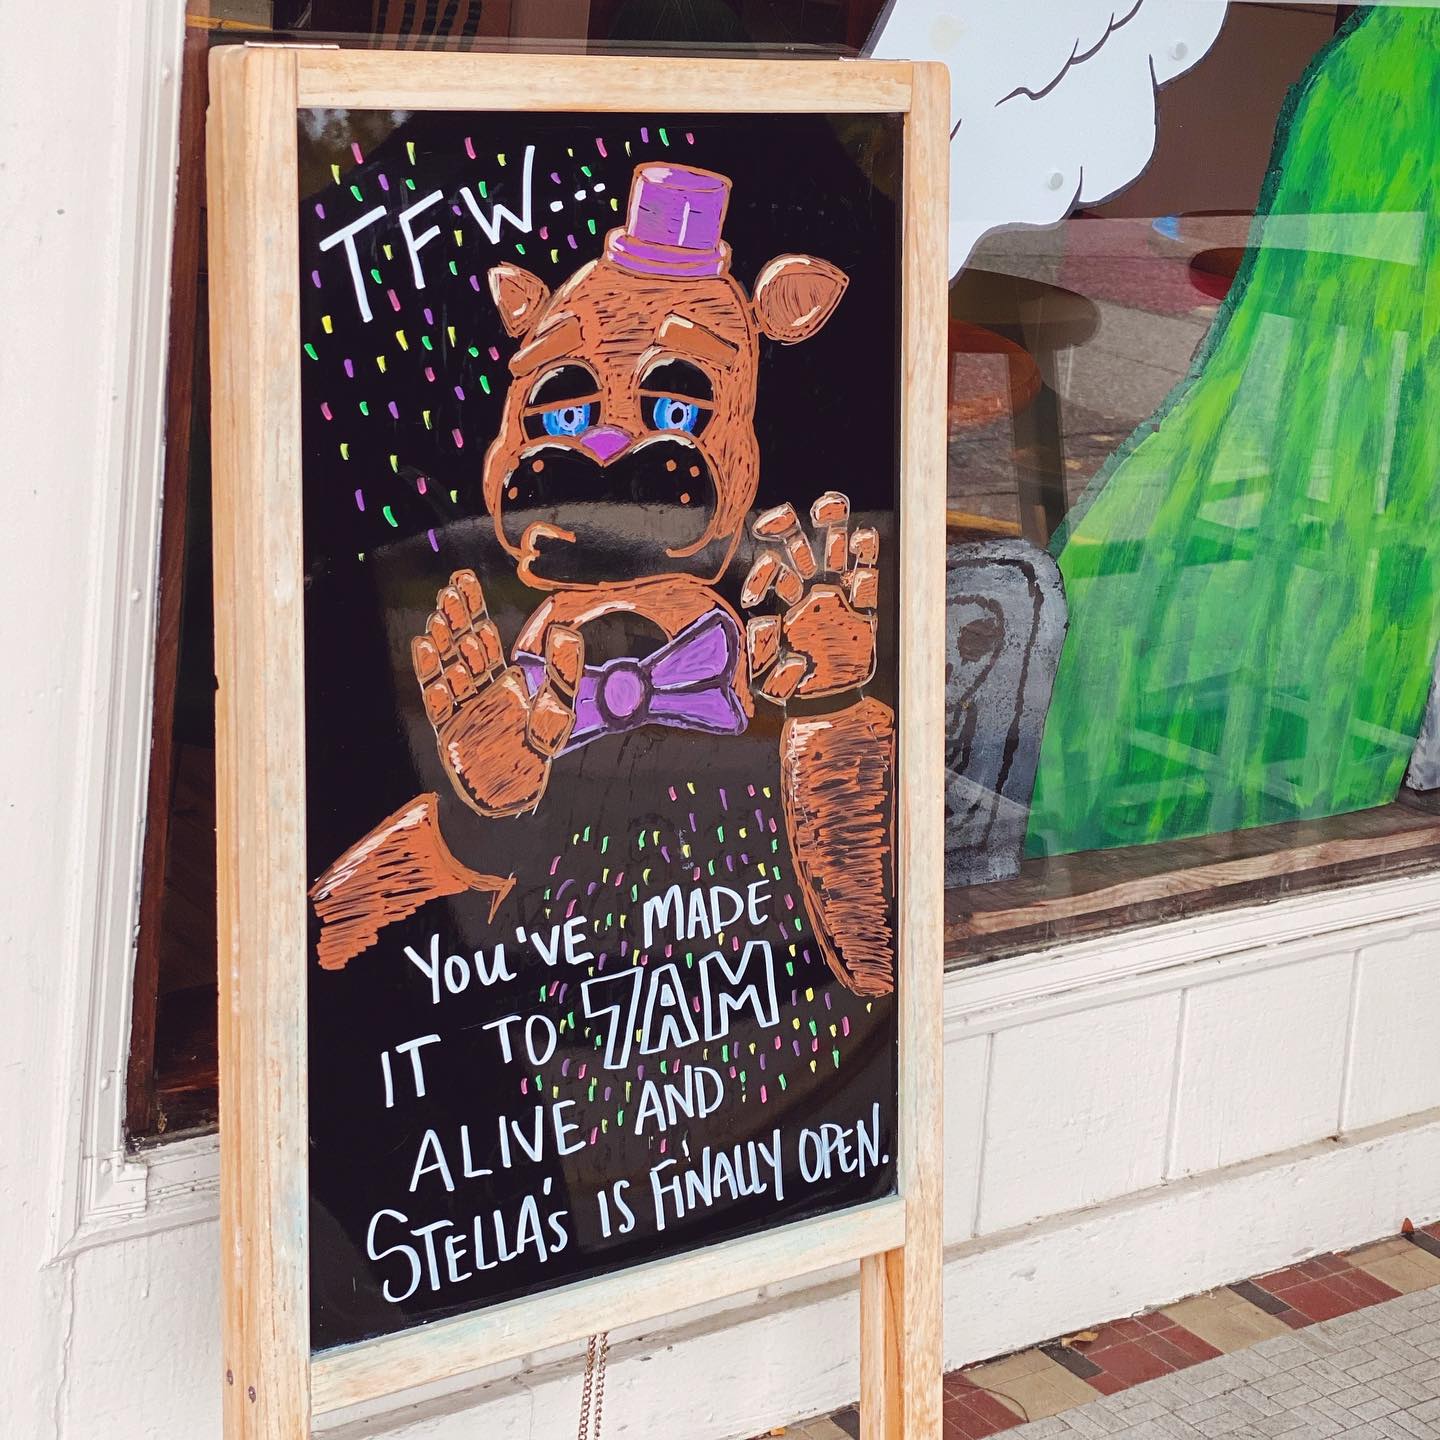 TFW..
YOU'VE MADE
IT TO 7AM
ALIVE AND
STELLA'S IS FINALLY OPEN.